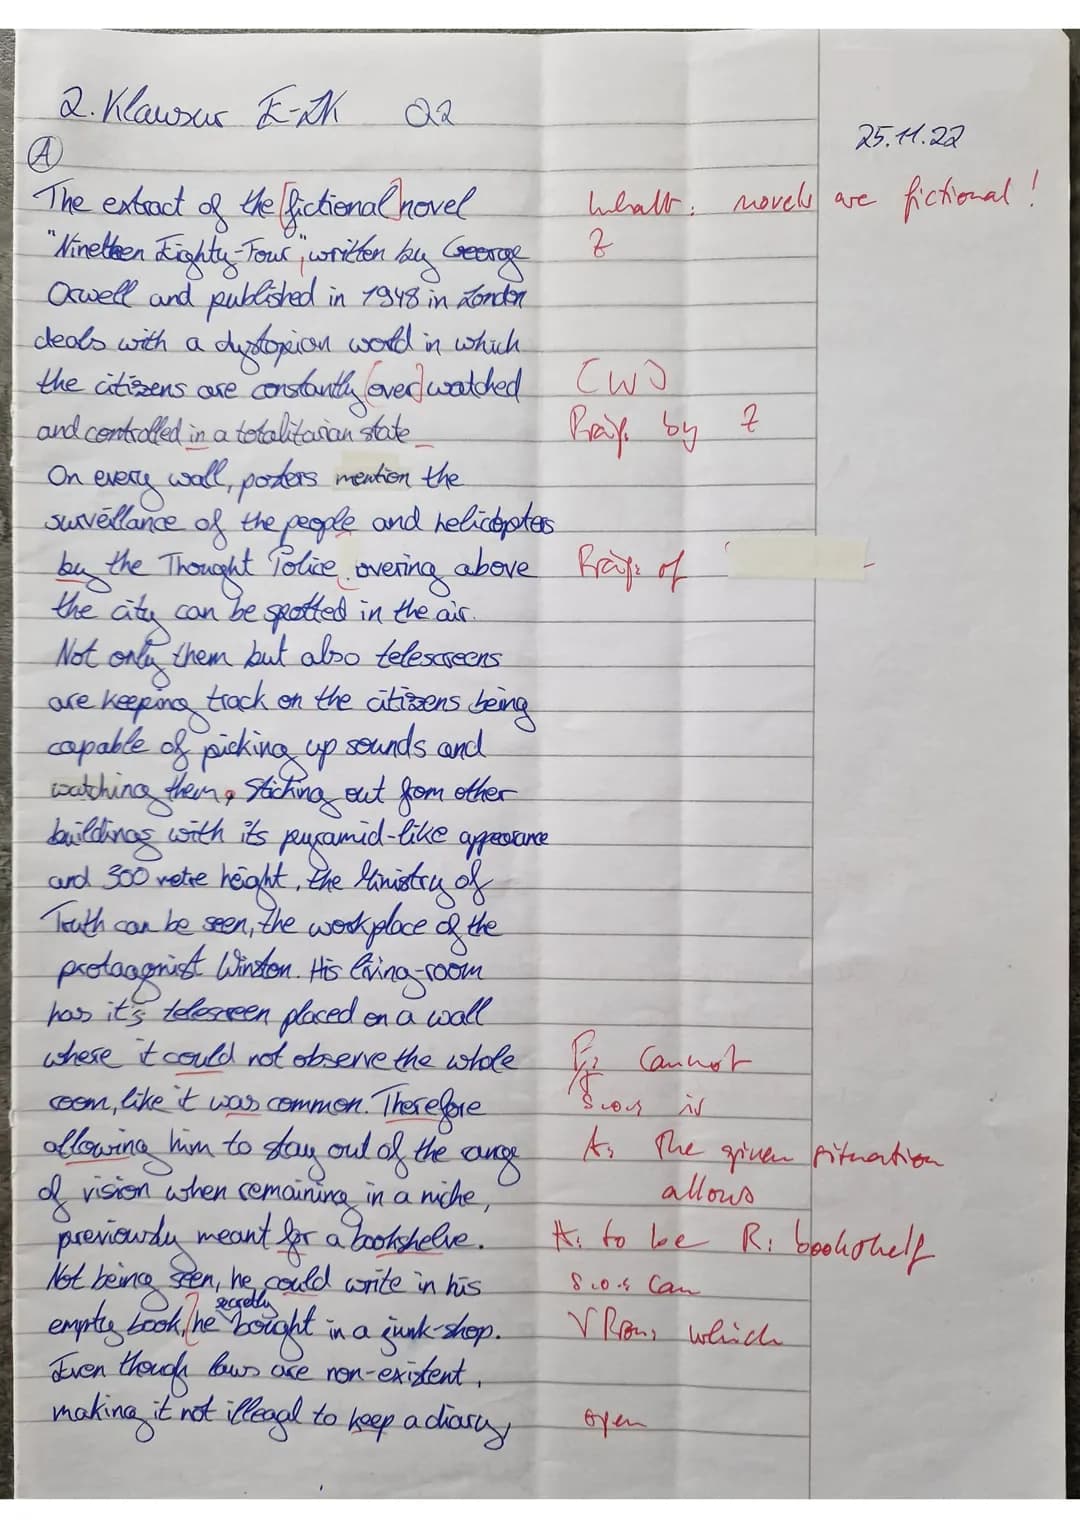 2. Klausur E-LK Q2
25.11.22
A
The extract of the [fictional] novel Inhalt: novels are fictional!
"Nineteen Eighty-Four", written by George Z
Orwell and published in 1948 in London
deals with a dystopian world in which
the citizens are constantly [over]watched [W]
and controlled in a totalitarian state Präp. by Z
On every wall, posters mention the
surveillance of the people and helicopters
by the Thought Police overing above Präp: of
the city can be spotted in the air.
Not only them but also telescreens
are keeping track on the citizens being
capable of picking up sounds and
watching them. Sticking out from other
buildings with its pyramid-like appearance
and 300 metre height, the Ministry of
Truth can be seen, the workplace of the
protagonist Winston. His living-room
has it's telescreen placed on a wall
where it could not observe the whole cannot
room, like it was common. Therefore s.o.: is
allowing him to stay out of the range A: The given situation
of vision when remaining in a niche, allows
previously meant for a bookshelve. A: to be R: bookshelf
Not being seen, he could write in his s.o.: can
empty book, he secretly bought in a junk-shop. V Pron: which
Even though laws are non-existent,
making it not illegal to keep a diary, open